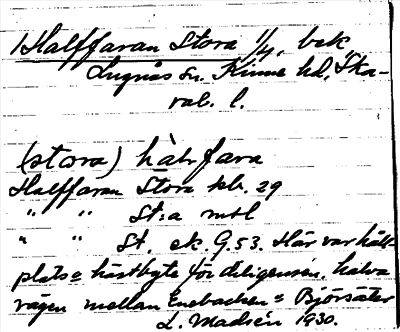 Halffaran Stora 1/4, bek,
Lugnås sn. Kinne hd, Ska-
rab. l.
(stora) hàlvfara
Halffaran Stora kb. 29
" " St:a mtl
" " St. ek. G. 53. Här var håll-
plats = hästbyte för diligensen, halva
vägen mellan Enebacken = Björsäter
L. Madsén 1930.